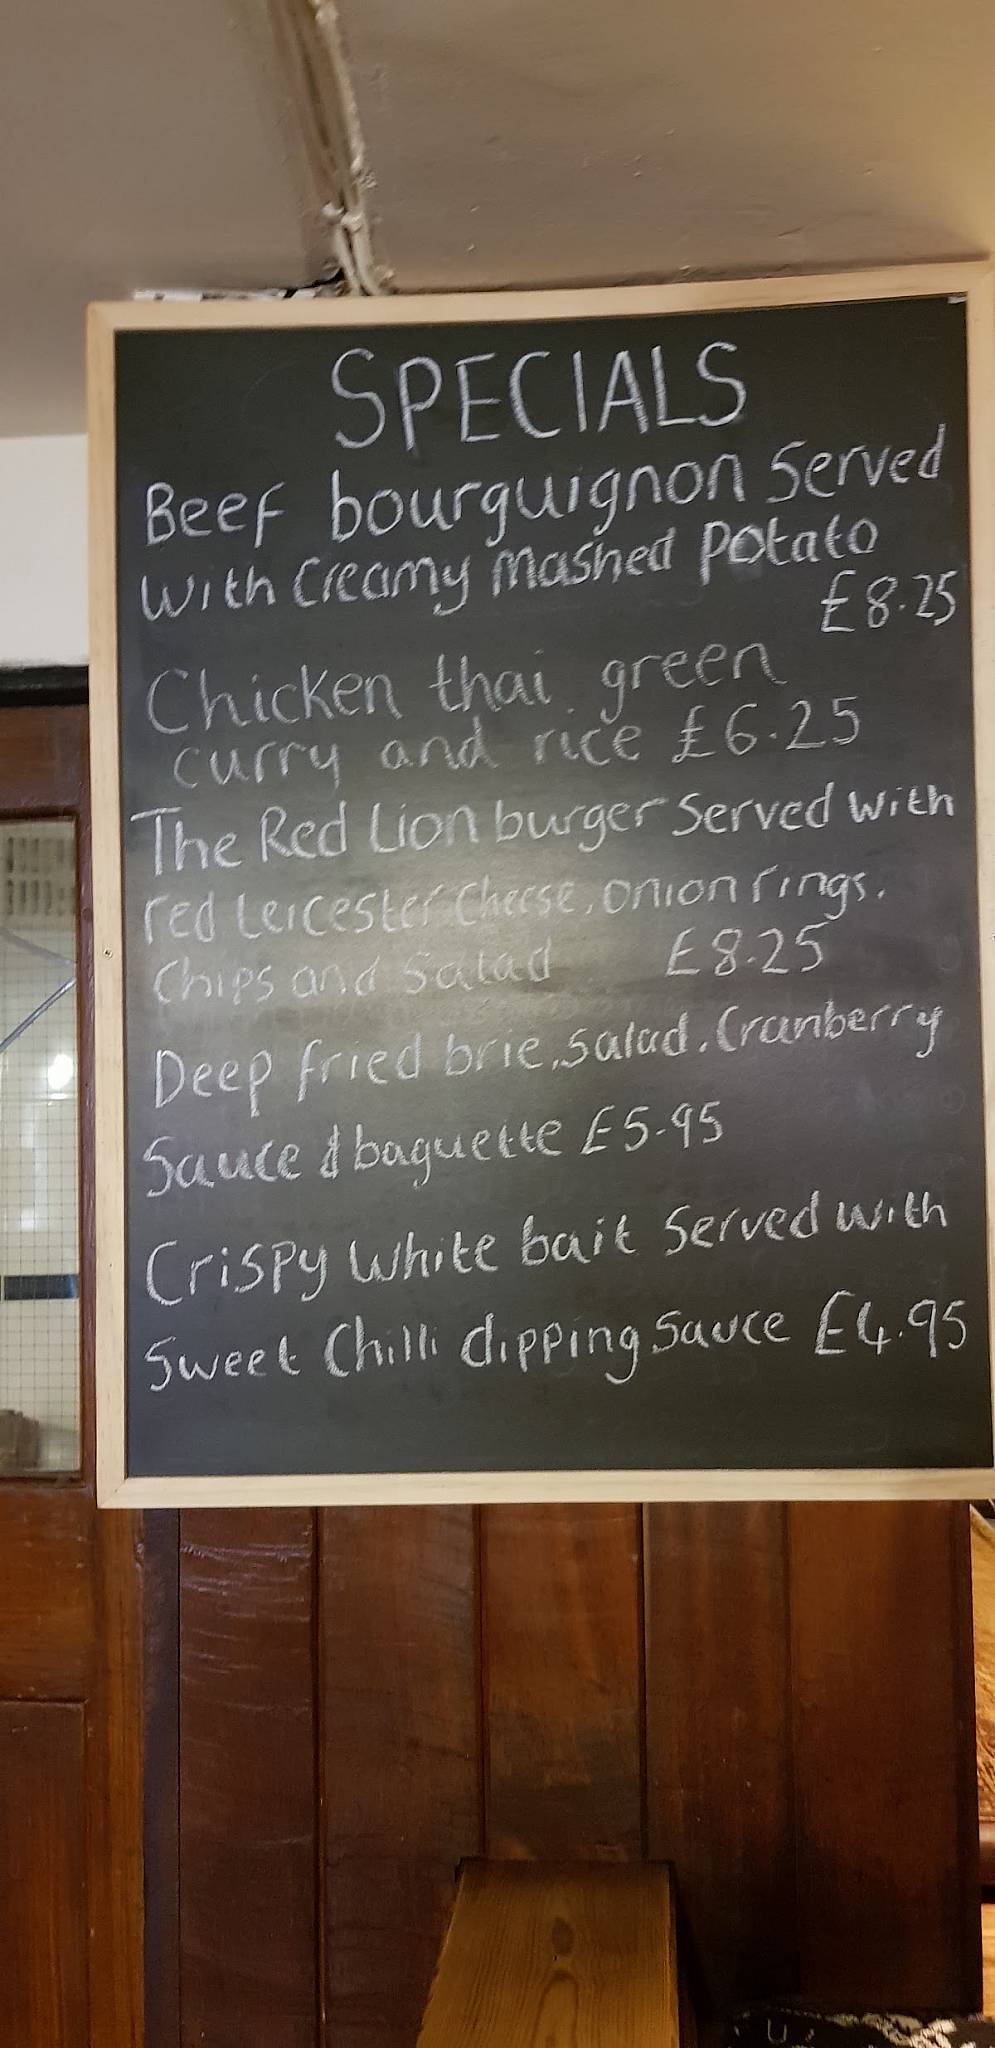 SPECIALS
Beef bourguignon Served
with Creamy mashed Potato
£8.25
Chicken thai green
curry and rice £6.25
The Red Lion burger Served with
red Leicester Cheese, onion rings.
Chips and Salad £8.25
Deep fried brie, Salad, Cranberry
Sauce & baguette £5-95
Crispy White bait Served with
Sweet Chilli dipping Sauce £4.95